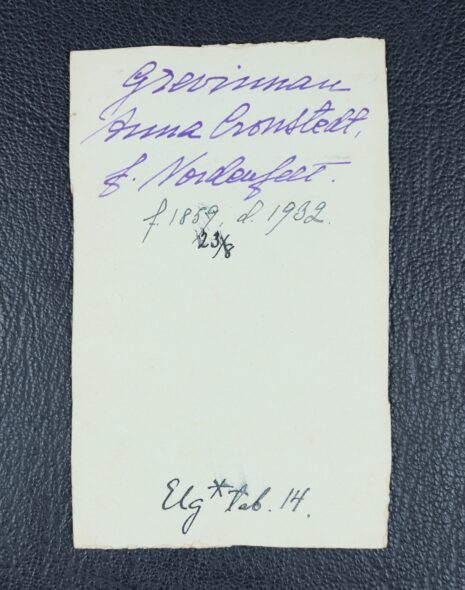 Grevinnan
Anna Cronstedt,
f. Nordenfelt.
f. 1859. d. 1932.
23/8
Elg* tab. 14.